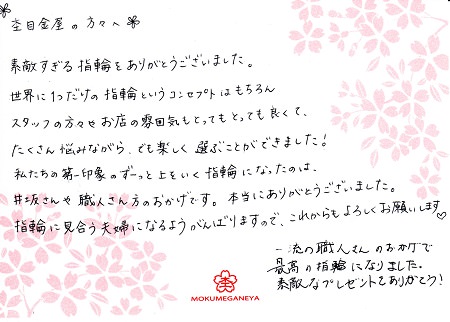 杢目金屋の方々へ
素敵すぎる指輪をありがとうございました。
世界に1つだけの指輪というコンセプトはもちろん
スタッフの方々やお店の雰囲気もとってもとっても良くて、
たくさん悩みながら、でも楽しく選ぶことができました!
私たちの第一印象のずーっと上をいく指輪になったのは、
井坂さんや職人さん方のおかげです。本当にありがとうございました。
指輪に見合う夫婦になるようがんばりますので、これからもよろしくお願いします♡
一流の職人さんのおかげで
最高の指輪になりました。
素敵なプレゼントをありがとう!
MOKUMEGANEYA